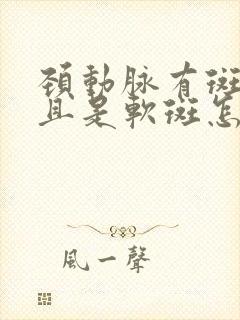 頚動脉有斑
且是軟斑怎
風一聲